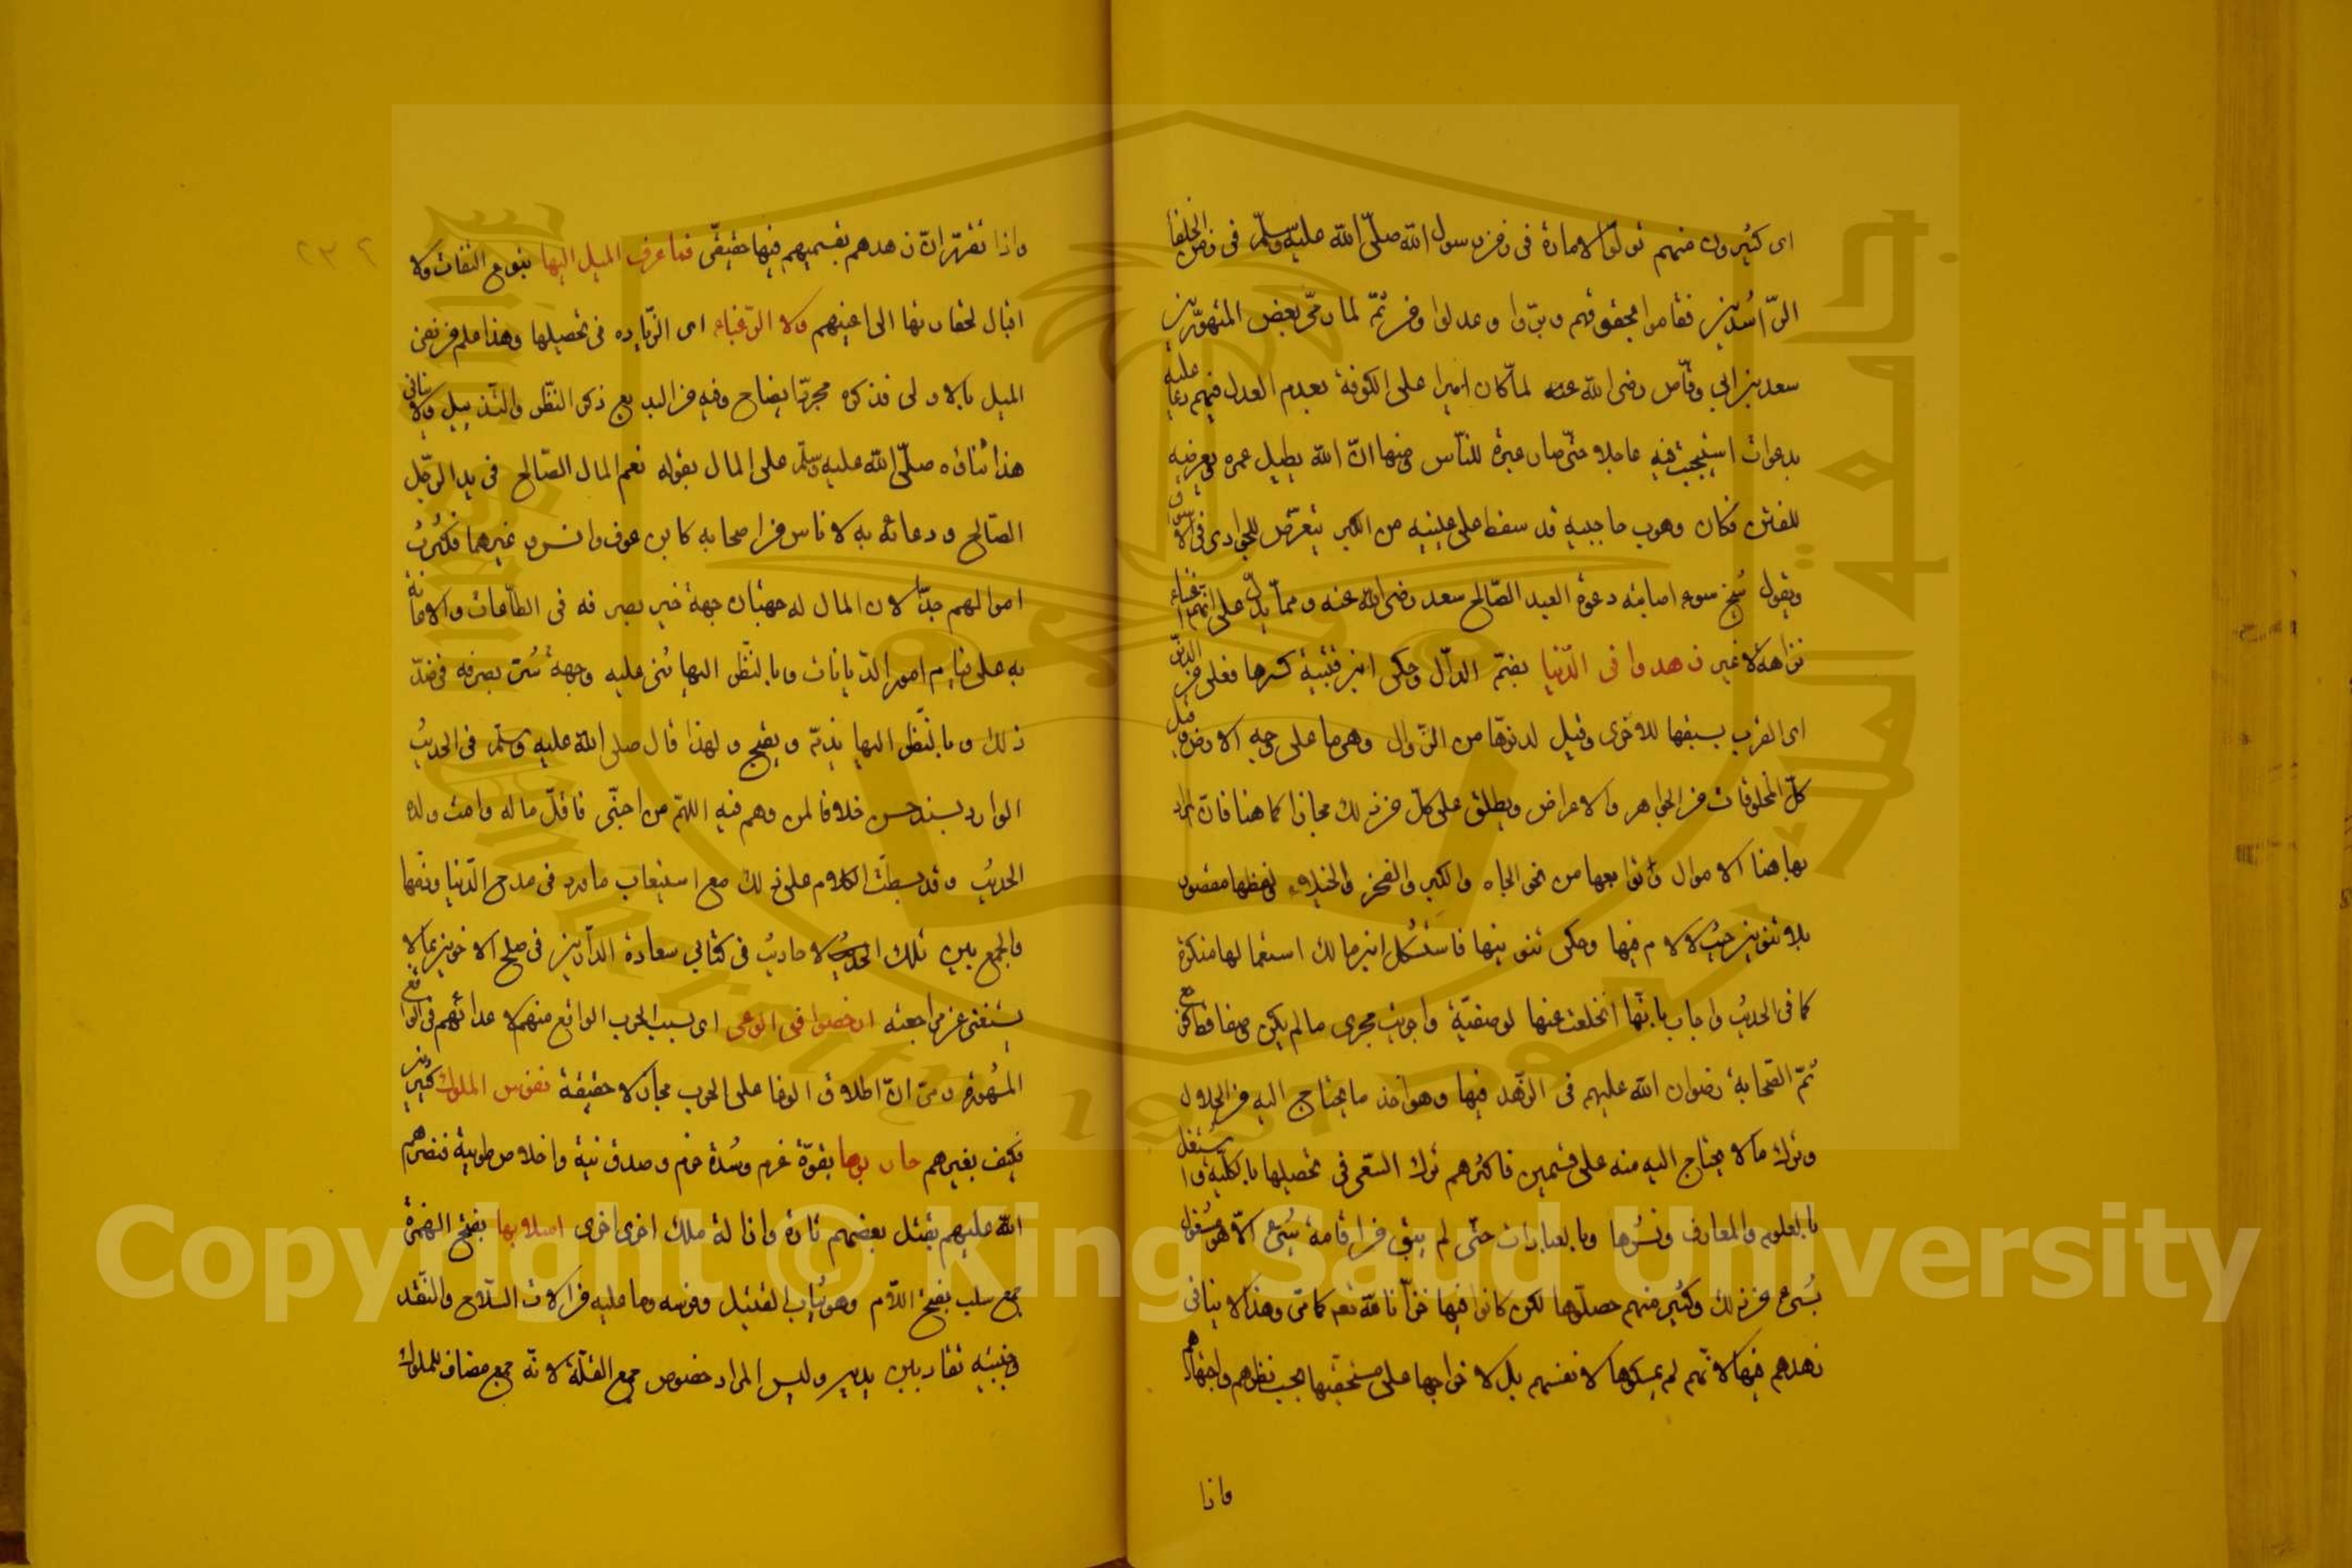 اى كثيرون منهم تولوا الامارة فى زمن رسول الله صلى الله عليه وسلم فى زمن الخلفا
الراشدين فقاموا بحقوقهم وبروا وعدلوا ومن ثم لما رمى بعض المتهورين
سعد بن ابى وقاص رضى الله عنه لما كان اميرا على الكوفة بعدم العدل فيهم دعا عليه
بدعوات استجيبت فيه عاجلا حتى صار عبرة للناس منها ان الله يطيل عمره ويعرضه
للفتن فكان وهو حاجبيه قد سقط على عينيه من الكبر يتعرض للجوارى فى الاسواق
ويقول شيخ سوء اصابته دعوة العبد الصالح سعد رضى الله عنه ومما يدل على انهم اغنياء
نزاهة لا غير زهدوا فى الدنيا بضم الدال وحكى ابن قتيبة كسرها فعلى من الدنو
اى القرب بسبقها للاخرى وقيل لدنوها من الزوال وهى ما على وجه الارض وقيل
كل المخلوقات من الجواهر والاعراض ويطلق على كل من ذلك مجازا كما هنا فان المراد
بها هنا الاموال وتوابعها من نحو الجاه والكبر والفخر والخيلاء ولفظها مقصور
بلا تنوين حيث لا لام فيها وحكى تنوينها فاستشكل ابن مالك استعمالها منكرة
كما فى الحديث واجاب بانها انخلعت عنها لوصفية واجريت مجرى ما لم يكن وصفا قط كرجعى
ثم الصحابة رضوان الله عليهم فى الزهد فيها وهو اخذ ما يحتاج اليه من الحلال
وترك ما لا يحتاج اليه منه على قسمين فاكثرهم ترك السعى فى تحصيلها بالكلية واشتغل
بالعلوم والمعارف ونشرها وبالعبادات حتى لم يبق من اوقاته شىء الا هو مشغول
بشىء من ذلك وكثير منهم حصلوها لكن كانوا فيها خزانا لله نعم كما مر وهذا لا ينافى
زهدهم فيها لانهم لم يمسكوها لانفسهم بل لاخراجها على مستحقيها بحسب نظرهم واجتهادهم
واذا
واذا تقرر ان زهدهم بقسميهم فيها حقيقى فما عرف الميل اليها بنوع التفات ولا
اقبال لحقارتها الى اعينهم ولا الرغباء اى الزيادة فى تحصيلها وهذا علم من نفى
الميل بالاولى فذكره مجرد ايضاح وفيه من البديع ذكر النظر والتذييل ولا ينافى
هذا ثناؤه صلى الله عليه وسلم على المال بقوله نعم المال الصالح فى يد الرجل
الصالح ودعائه به لاناس من اصحابه كابن عوف وانس وغيرهما فكثرت
اموالهم جدا لان المال له جهتان جهة خير بصرفه فى الطاعات والاعانة
به على قيام امور الديانات وبالنظر اليها يثنى عليه وجهة شر بصرفه فى ضد
ذلك وبالنظر اليها يذم ويقبح ولهذا قال صلى الله عليه وسلم فى الحديث
الوارد بسند حسن خلافا لمن وهم فيه اللهم من احبنى فاقل ماله وامت ولده
الحديث وقد بسطت الكلام على ذلك مع استيعاب ما ورد فى مدح الدنيا وذمها
والجمع بين تلك الاحاديث فى كتابى سعادة الدارين فى صلح الاخوين بما لا
يستغنى عن مراجعته ارخصوا فى الوغى اى بسبب الحرب الواقع منهم لاعدائهم فى الواقع
المشهورة ومر ان اطلاق الوغا على الحرب مجاز لا حقيقة نفوس الملوك كثيرين
فكيف بغيرهم حاربوها بقوة عزم وشدة حزم وصدق نية واخلاص طوية فنصرهم
الله عليهم بقتل بعضهم تارة وازالة ملك اخرى اخرى اسلابها بفتح الهمزة
جمع سلب بفتح اللام وهو ثياب القتيل وفرسه وما عليه من الات السلاح والنقد
وجنيبة تقاد بين يديه وليس المراد خصوص جمع القلة لانه جمع مضاف للملوك
Copyright © King Saud University